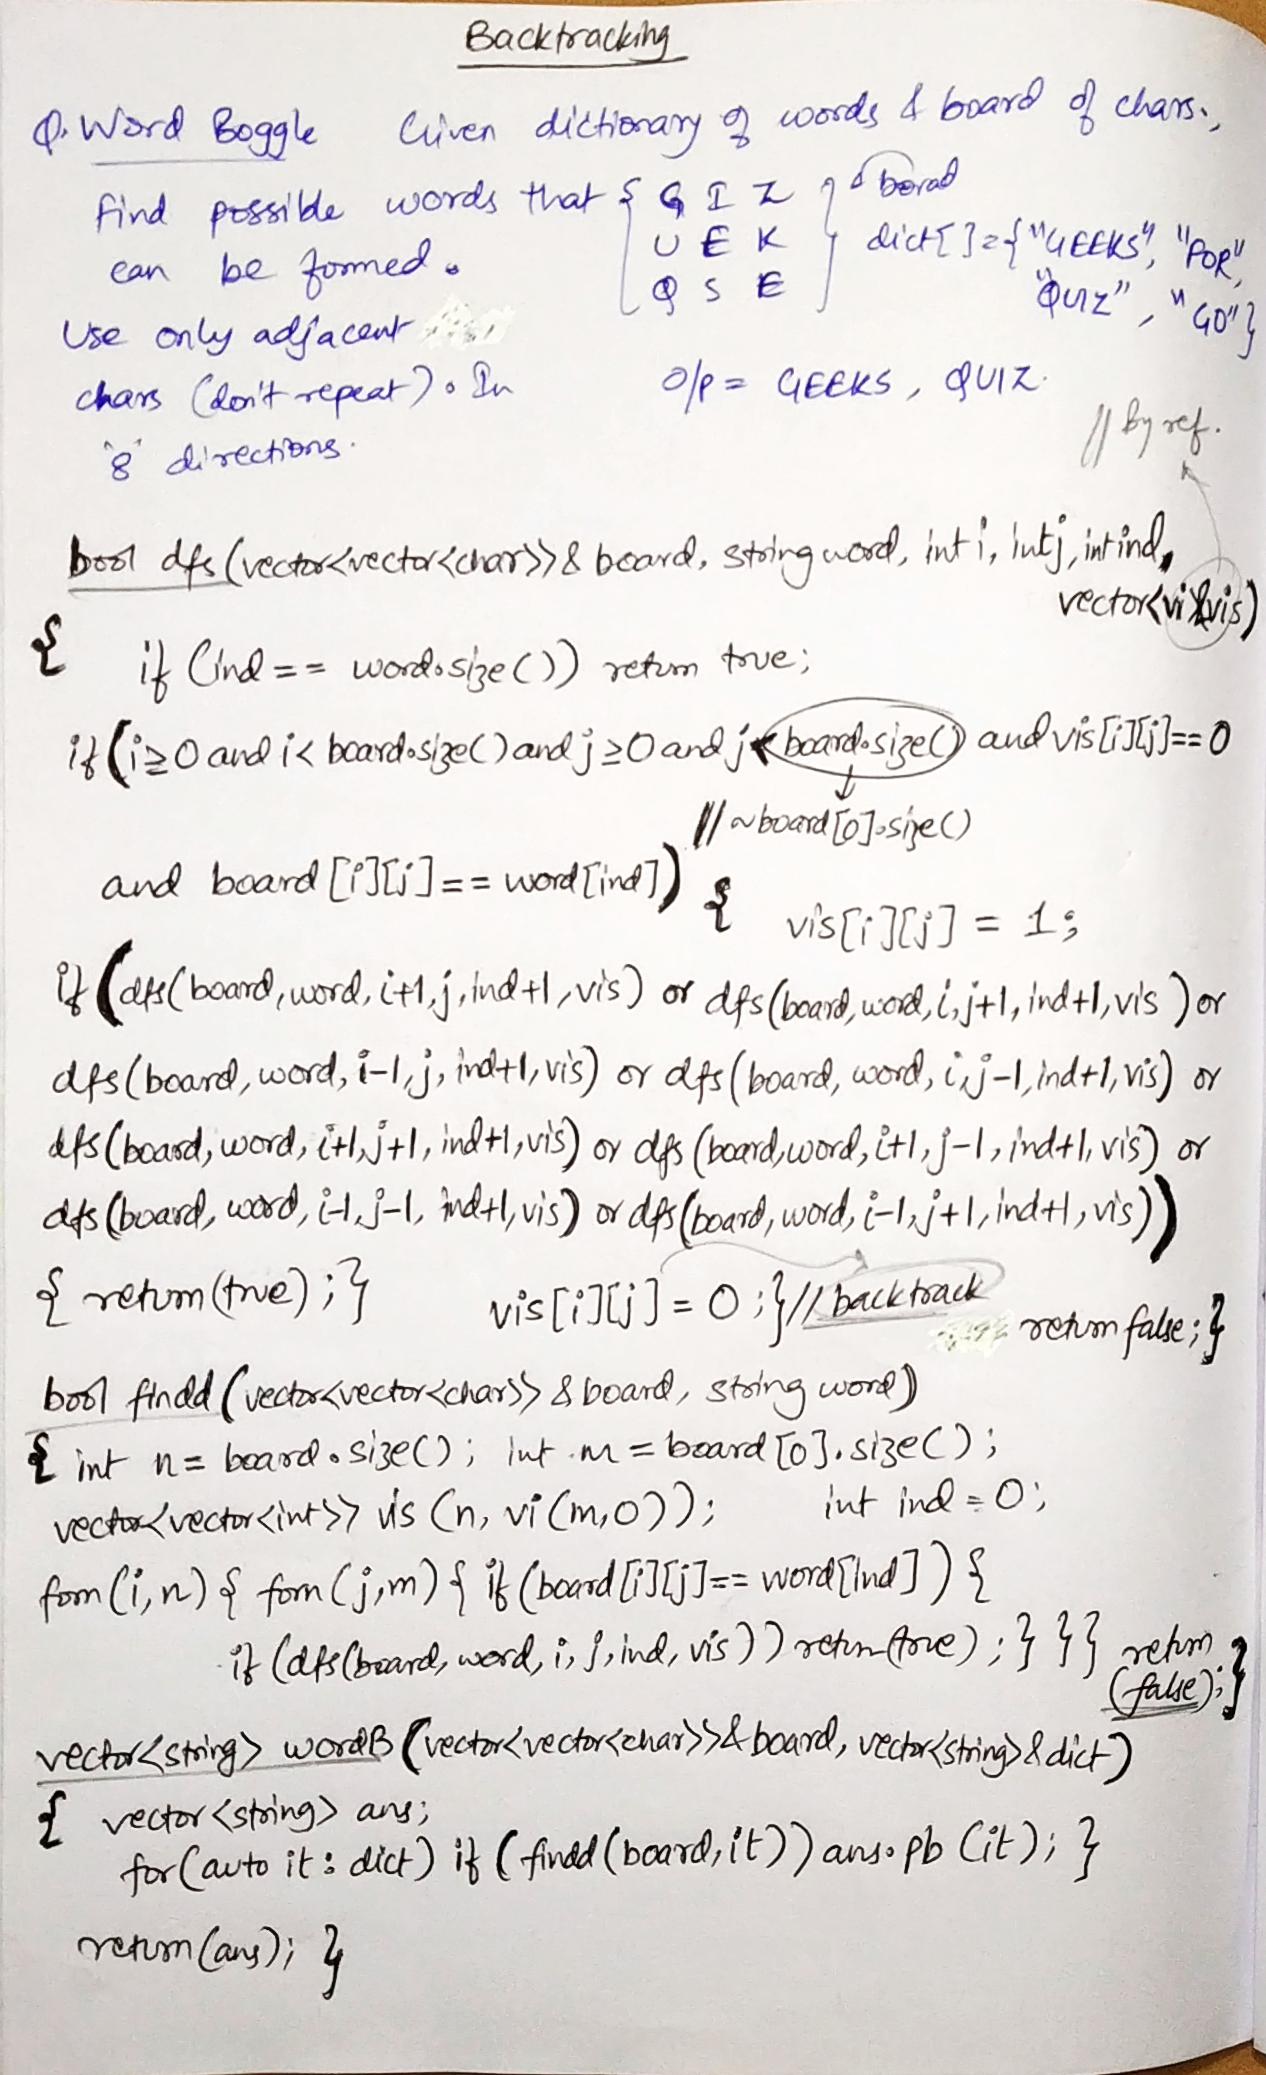 Backtracking
Q. Word Boggle Given dictionary of words & board of chars.,
find possible words that { G I Z } borad
can be formed. U E K dict[]={"GEEKS", "FOR",
Q S E "QUIZ", "GO"}
Use only adjacent
chars (don't repeat). In O/P = GEEKS, QUIZ.
'8' directions.
// By ref.
bool dfs(vector<vector<char>>& board, string word, int i, int j, int ind,
vector<vi>&vis)
{ if (ind == word.size()) return true;
if (i≥0 and i< board.size() and j≥0 and j< board.size() and vis[i][j]==0
// ~board[0].size()
and board [i][j]== word[ind]) { vis[i][j] = 1;
if (dfs(board,word,i+1,j,ind+1,vis) or dfs(board,word,i,j+1,ind+1,vis) or
dfs(board,word,i-1,j,ind+1,vis) or dfs(board,word,i,j-1,ind+1,vis) or
dfs(board,word,i+1,j+1,ind+1,vis) or dfs(board,word,i+1,j-1,ind+1,vis) or
dfs(board,word,i-1,j-1,ind+1,vis) or dfs(board,word,i-1,j+1,ind+1,vis))
{ return(true);} vis[i][j] = 0;} // backtrack
return false;}
bool findd (vector<vector<char>> & board, string word)
{ int n= board.size(); int m = board[0].size();
vector<vector<int>> vis (n, vi(m,0)); int ind = 0;
forn(i,n) { forn(j,m) { if (board[i][j]== word[ind]) {
if (dfs(board,word,i,j,ind,vis)) return(true);} }} return
(false);}
vector<string> wordB (vector<vector<char>>& board, vector<string>& dict)
{ vector<string> ans;
for(auto it: dict) if (findd(board,it)) ans.pb(it); }
return(ans); }